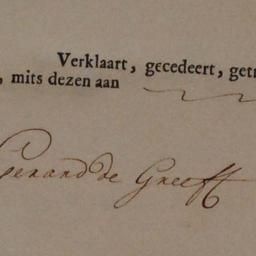 Verklaart, gecedeert, getr
, mits dezen aan
Gerand de Greeff